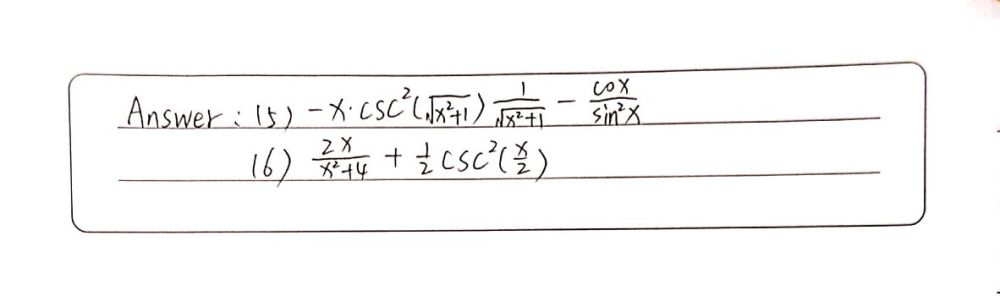 Answer : 15) -x·csc²(√(x²+1)) 1/√(x²+1) - cox/sin²x
16) 2x/(x²+4) + 1/2 csc²(x/2)